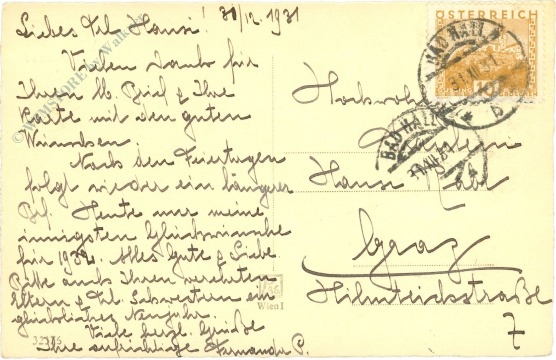 Liebes Frl. Hansi! 30/12. 1931
Vielen Dank für
Ihren lb. Brief & Ihre
Karte mit den guten
Wünschen.
Nach den Feiertagen
folgt wieder ein längerer
Brf. Heute nur meine
innigsten Glückwünsche
für 1932. Alles Gute & Liebe
Bitte auch Ihren verehrten
Eltern & Frl. Schwestern ein
glückliches Neujahr.
Viele herzl. Grüße
Ihre aufrichtige P.
32375
Wien I
ÖSTERREICH
BAD HALL
BAD HALL
Fräulein
Graz
Hilmteichstraße
7